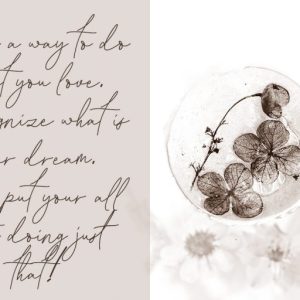 a way to do
you love.
what is
dream.
put your all
doing just
that!